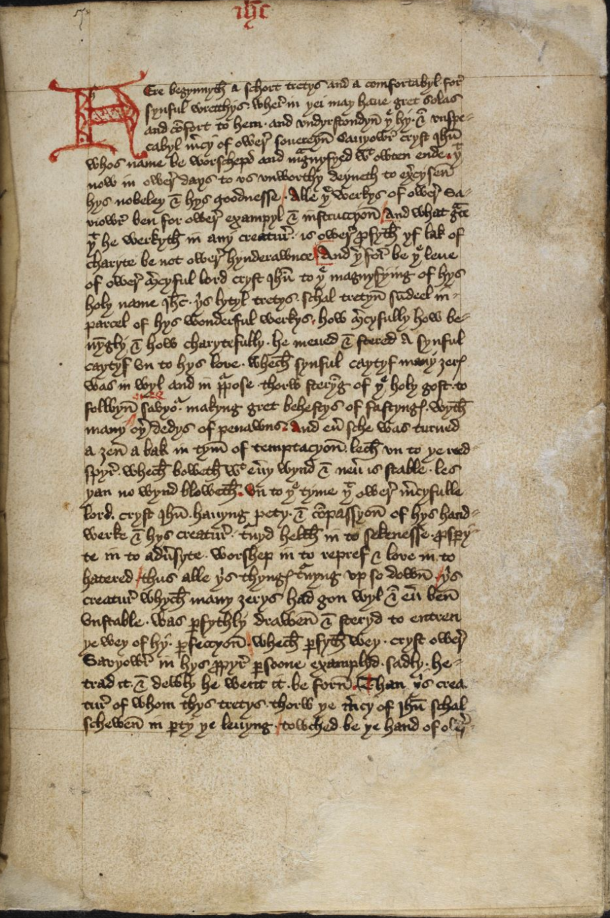 ihc
Here begynnyth a schort tretys and a comfortabyl for
synful wrecchys wher in þei may haue gret solas
and cōfort to hem · and vndyrstondyn þͤ hy · & vnspe
cabyl m̄cy of ower souereyn Sauyowr cryst Ihū
whos name be worschepd and magnyfyed wͭ owten ende · þͭ
now in ower days to vs vnworthy deyneth to excysen
hys nobeley & hys goodnesse / Alle þͤ werkys of ower Sa-
viowr ben for ower exampyl & instruccyon / And what gͣce
þͭ he werkyth in any creatur · is ower ꝓfyth yf lak of
charyte be not ower hynderawnce / And þͬfor be þͤ leue
of ower m̄cyful lord cryst Ihū to þͤ magnyfying of hys
holy name Ihc · þis lytyl tretys schal tretyn sūdeel in
parcel of hys wonderful werkys · how m̄cyfully how be-
nyngly & how charytefully · he meued & stered a synful
caytyf vn to hys love · whech synful caytyf many ȝerȝ
was in wyl and in ꝑpose · thorw steryg of þͤ holy gost · to
folwyn Savyoͬ ower · makyng gret behestys of fastyngȝ · wyth
many oþͬ dedys of penawns · And eū sche was turned
a ȝen a bak in tym of temptacyon · lech vn to þe reed-
spyr · whech boweth wͭ euy wynd & neuͬ is stable · les
þan no wynd bloweth · Vn to þͤ tyme þͭ ower m̄cyfulle
lord · cryst Ihū · hauyng pety · & cōpassyon of hys hand-
werke & hys creatur · tnyd helth in to sekenesse · ꝓspꝑi-
te in to adūsyte · worshep in to repref & love in to
hatered / thus alle þis thyngȝ tͬnyng vp so down / þis
creatur whych many ȝerys had gon wyl & eū ben
vnstable · was ꝑfythly drawen & steryd to entren
þe wey of hy · ꝑfeccyon / whech ꝑfyth wey · cryst ower
Savyowr in hys ꝓpyr ꝑsoone examplyd · sadly · he
trad it · & dewly he went it · be forn / Than þis crea-
tur of whom thys tretys · thorw þe m̄cy of Ihū schal
schewen in ꝑty þe leuyng · towched be þe hand of ower